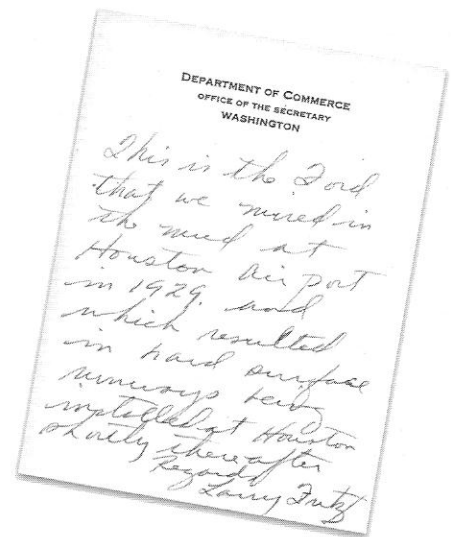 DEPARTMENT OF COMMERCE
OFFICE OF THE SECRETARY
WASHINGTON
This is the Ford
that we mired in
the mud at
Houston Air port
in 1929. and
which resulted
in hard surface
runways being
installed at Houston
shortly thereafter
Regards
Larry Fritz